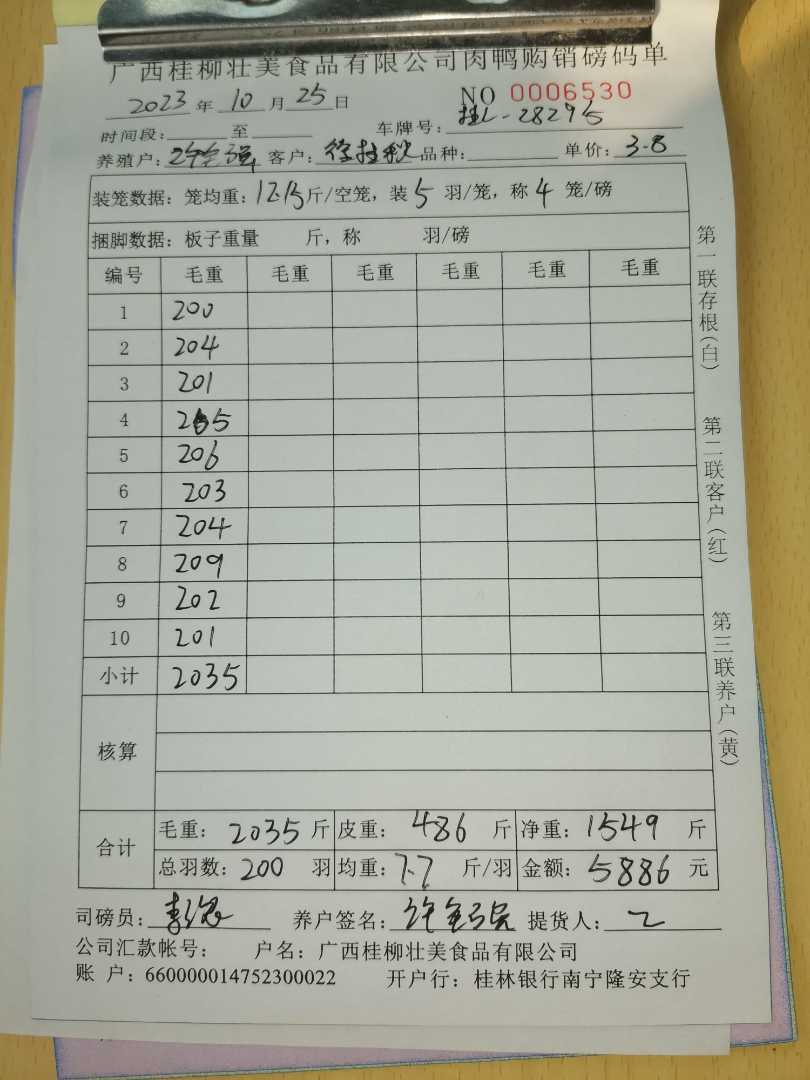 广西桂柳壮美食品有限公司肉鸭购销磅码单
2023年10月25日 NO 0006530
时间段： 至 车牌号：桂L-28295
养殖户： 强 客户：徐桂秋 品种： 单价：3.8
装笼数据：笼均重：12.15斤/空笼，装5羽/笼，称4笼/磅
捆脚数据：板子重量 斤，称 羽/磅
编号 毛重 毛重 毛重 毛重 毛重 毛重
1 200
2 204
3 201
4 205
5 206
6 203
7 204
8 209
9 202
10 201
小计 2035
核算
合计 毛重：2035斤 皮重：486斤 净重：1549斤
总羽数：200羽 均重：7.7斤/羽 金额：5886元
司磅员：李 养户签名：许 提货人：
公司汇款帐号： 户名：广西桂柳壮美食品有限公司
账 户：660000014752300022 开户行：桂林银行南宁隆安支行
第一联存根（白） 第二联客户（红） 第三联养户（黄）